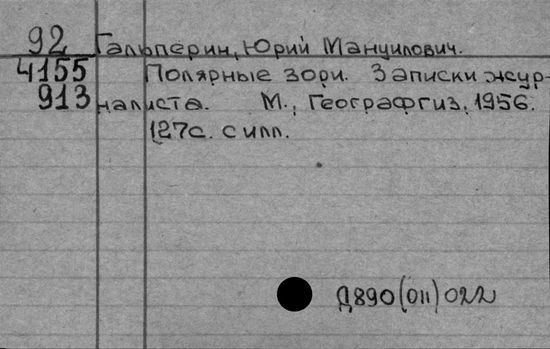 92 Гальперин, Юрий Мануилович.
4155 Полярные зори. Записки жур-
913 налиста. М., Географгиз, 1956.
127с. с илл.
Д890(011)022